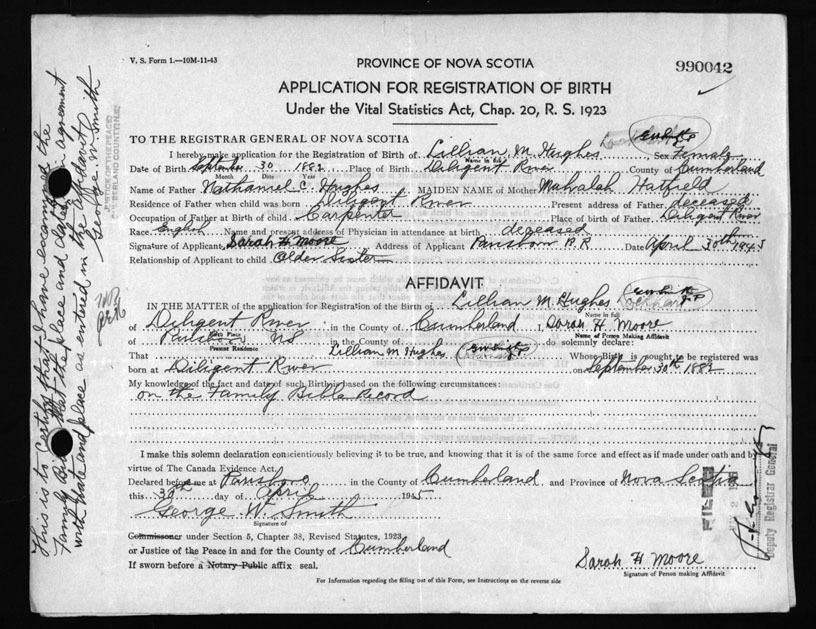 V. S. Form 1.—10M-11-43
PROVINCE OF NOVA SCOTIA
990042
APPLICATION FOR REGISTRATION OF BIRTH
Under the Vital Statistics Act, Chap. 20, R. S. 1923
TO THE REGISTRAR GENERAL OF NOVA SCOTIA
I hereby make application for the Registration of Birth of Lillian M. Hughes Sex Female
Name in full
Date of Birth September 30 188 Place of Birth Diligent River County of Cumberland
Month Date Year
Name of Father Nathaniel C. Hughes MAIDEN NAME of Mother Mahalah Hatfield
Residence of Father when child was born Diligent River Present address of Father deceased
Occupation of Father at Birth of child Carpenter Place of birth of Father Diligent River
Race English Name and present address of Physician in attendance at birth deceased
Signature of Applicant Sarah H Moore Address of Applicant Parrsboro B.R Date April 30th 1945
Relationship of Applicant to child Older Sister
AFFIDAVIT
IN THE MATTER of the application for Registration of the Birth of Lillian M. Hughes
Name in full
of Diligent River in the County of Cumberland I, Sarah H. Moore
Birth Place Name of Person Making Affidavit
of Parrsboro NS in the County of do solemnly declare:
Present Residence
That Lillian M Hughes Whose Birth is sought to be registered was
born at Diligent River on September 30th 188
My knowledge of the fact and date of such Birth is based on the following circumstances:
on the Family Bible Record
I make this solemn declaration conscientiously believing it to be true, and knowing that it is of the same force and effect as if made under oath and by
virtue of The Canada Evidence Act.
Declared before me at Parrsboro in the County of Cumberland and Province of Nova Scotia
this 30th day of April 1945
George W. Smith
Signature of
Commissioner under Section 5, Chapter 38, Revised Statutes, 1923
or Justice of the Peace in and for the County of Cumberland
If sworn before a Notary Public affix seal.
Sarah H Moore
Signature of Person making Affidavit
For Information regarding the filling out of this Form, see Instructions on the reverse side
This is to certify that I have examined the
Family Bible that the place and date in agreement
with date and place as entered in the affidavit
George W. Smith
JUSTICE OF THE PEACE
CUMBERLAND COUNTY, N.S.
FILED
Deputy Registrar General